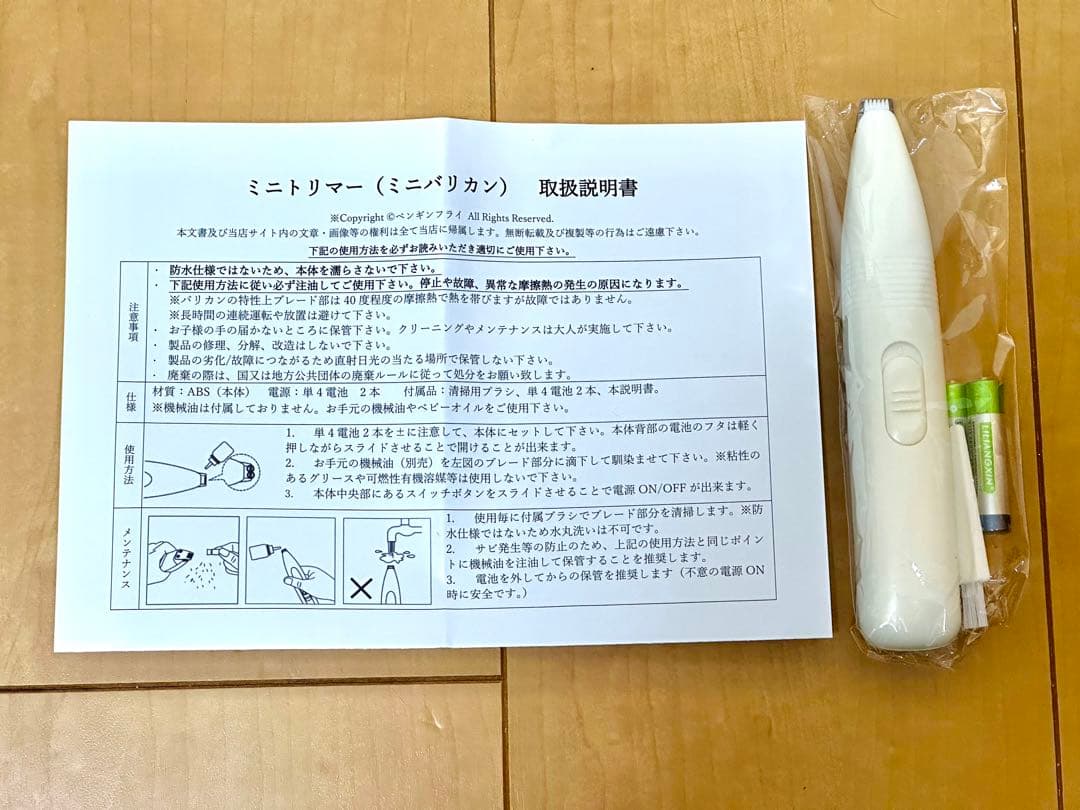 ミニトリマー（ミニバリカン）　取扱説明書
※Copyright ©ペンギンフライ All Rights Reserved.
本文書及び当店サイト内の文章・画像等の権利は全て当店に帰属します。無断転載及び複製等の行為はご遠慮下さい。
下記の使用方法を必ずお読みいただき適切にご使用下さい。
注意事項
・ 防水仕様ではないため、本体を濡らさないで下さい。
・ 下記使用方法に従い必ず注油してご使用下さい。停止や故障、異常な摩擦熱の発生の原因になります。
※バリカンの特性上ブレード部は40度程度の摩擦熱で熱を帯びますが故障ではありません。
※長時間の連続運転や放置は避けて下さい。
・ お子様の手の届かないところに保管下さい。クリーニングやメンテナンスは大人が実施して下さい。
・ 製品の修理、分解、改造はしないで下さい。
・ 製品の劣化/故障につながるため直射日光の当たる場所で保管しない下さい。
・ 廃棄の際は、国又は地方公共団体の廃棄ルールに従って処分をお願い致します。
仕様
材質：ABS（本体）　電源：単4電池　2本　　付属品：清掃用ブラシ、単4電池2本、本説明書。
※機械油は付属しておりません。お手元の機械油やベビーオイルをご使用下さい。
使用方法
1.　単4電池2本を±に注意して、本体にセットして下さい。本体背部の電池のフタは軽く
押しながらスライドさせることで開けることが出来ます。
2.　お手元の機械油（別売）を左図のブレード部分に滴下して馴染ませて下さい。※粘性の
あるグリースや可燃性有機溶媒等は使用しないで下さい。
3.　本体中央部にあるスイッチボタンをスライドさせることで電源ON/OFFが出来ます。
メンテナンス
1.　使用毎に付属ブラシでブレード部分を清掃します。※防
水仕様ではないため水丸洗いは不可です。
2.　サビ発生等の防止のため、上記の使用方法と同じポイン
トに機械油を注油して保管することを推奨します。
3.　電池を外してからの保管を推奨します（不意の電源ON
時に安全です。）
LIHANGXIN